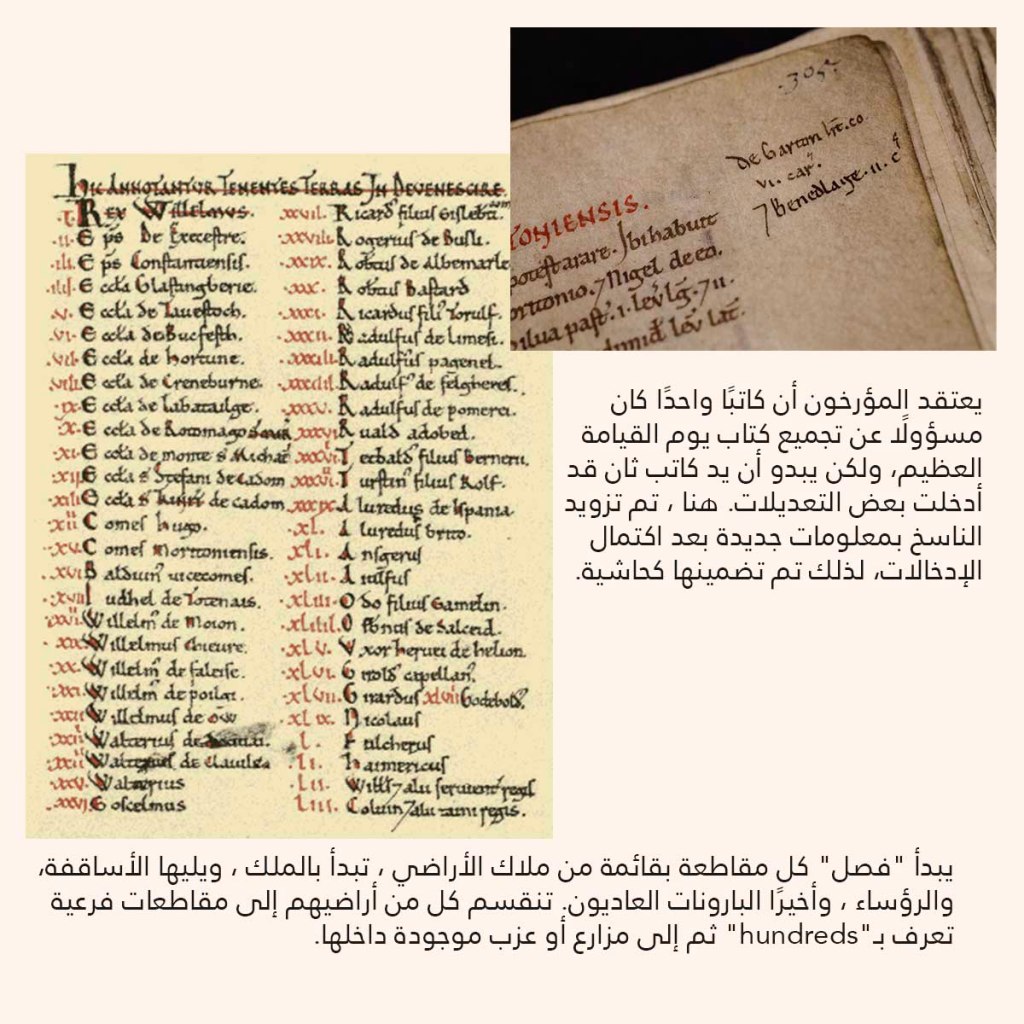 305
De Gartone hr̄. co
VI. car̄.
7 Benedlage. II. c̄
TONIENSIS.
potest arare. Ibi habuit
7 Nigel de eo.
silua past. I. lev̄ lḡ. 7 II.
dimid lev̄ lat̄.
HIC ANNOTANTUR TENENTES TERRAS IN DEVENESCIRE
I. REX Willelmus.
II. Eps̄ De Execestre.
III. Eps̄ Constantiensis.
IIII. Eccła Glastingberie.
V. Eccła de Tavestoch.
VI. Eccła de Bucfesth.
VII. Eccła de Hortune.
VIII. Eccła de Creneburne.
IX. Eccła de Labatailge.
X. Eccła de Rotomago
XI. Eccła de monte S Michae
XII. Eccła S Stefani de Cadom
XIII. Eccła S de Cadom
XIIII. Comes hugo.
XV. Comes Moritoniensis.
XVI. Balduin vicecomes.
XVII. Iudhel de Totenais.
XVIII. Willelm̄ de Moion.
XIX. Willelmus Chievre.
XX. Willelm̄ de faleise.
XXI. Willelm̄ de poilgi.
XXII. Willelmus de Ow
XXIII. Walterius de
XXIIII. Walterius de Clavile
XXV. Walterius
XXVI. Goscelmus
XXVII. Ricard filius Gislebti.
XXVIII. Rogerius de Busli.
XXIX. Robtus de Albemarle
XXX. Robtus Bastard
XXXI. Ricardus filī Torulf.
XXXII. Radulfus de limesi.
XXXIII. Radulfus pagenel.
XXXIIII. Radulf' de felgheres.
XXXV. Radulfus de pomerei.
XXXVI. Ruald adobed.
XXXVII. Tetbald filius Bernerii.
XXXVIII. Turstin filius Rolf.
XXXIX. Aluredus de Ispania.
XL. Aluredus brito.
XLI. Ansgerus
XLII. Aiulfus
XLIII. Odo filius Gamelin.
XLIIII. Osbernus de Salceid.
XLV. Uxor hervei de helion
XLVI. Girold capellan'.
XLVII. Girardus XLVIII Godebold'.
XLIX. Nicolaus
L. Fulcherus
LI. Haimericus
LII. Wills 7 alii servient regis
LIII. Coluin 7 alii taini regis.
يعتقد المؤرخون أن كاتبًا واحدًا كان
مسؤولًا عن تجميع كتاب يوم القيامة
العظيم، ولكن يبدو أن يد كاتب ثان قد
أدخلت بعض التعديلات. هنا ، تم تزويد
الناسخ بمعلومات جديدة بعد اكتمال
الإدخالات، لذلك تم تضمينها كحاشية.
يبدأ "فصل" كل مقاطعة بقائمة من ملاك الأراضي ، تبدأ بالملك ، ويليها الأساقفة،
والرؤساء ، وأخيرًا البارونات العاديون. تنقسم كل من أراضيهم إلى مقاطعات فرعية
تعرف بـ"hundreds" ثم إلى مزارع أو عزب موجودة داخلها.